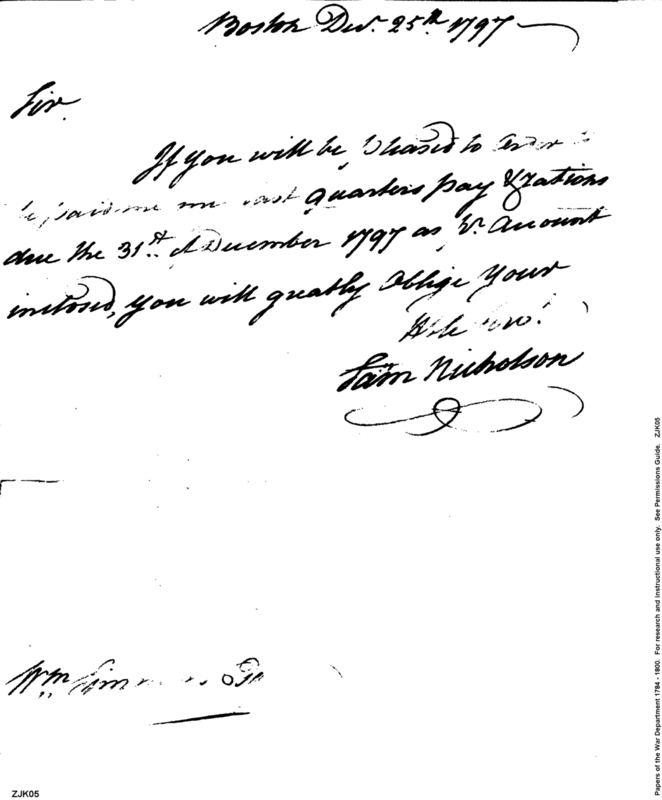 Boston Decr. 25th. 1797
Sir.
If you will be pleased to order to
be paid me my last quarters pay & rations
due the 31st. of December 1797 as pr. Account
inclosed, you will greatly Oblige Your
Hble Servt.
Sam Nicholson
Wm. Simmons Esqr
ZJK05
Papers of the War Department 1784 - 1800. For research and instructional use only. See Permissions Guide. ZJK05